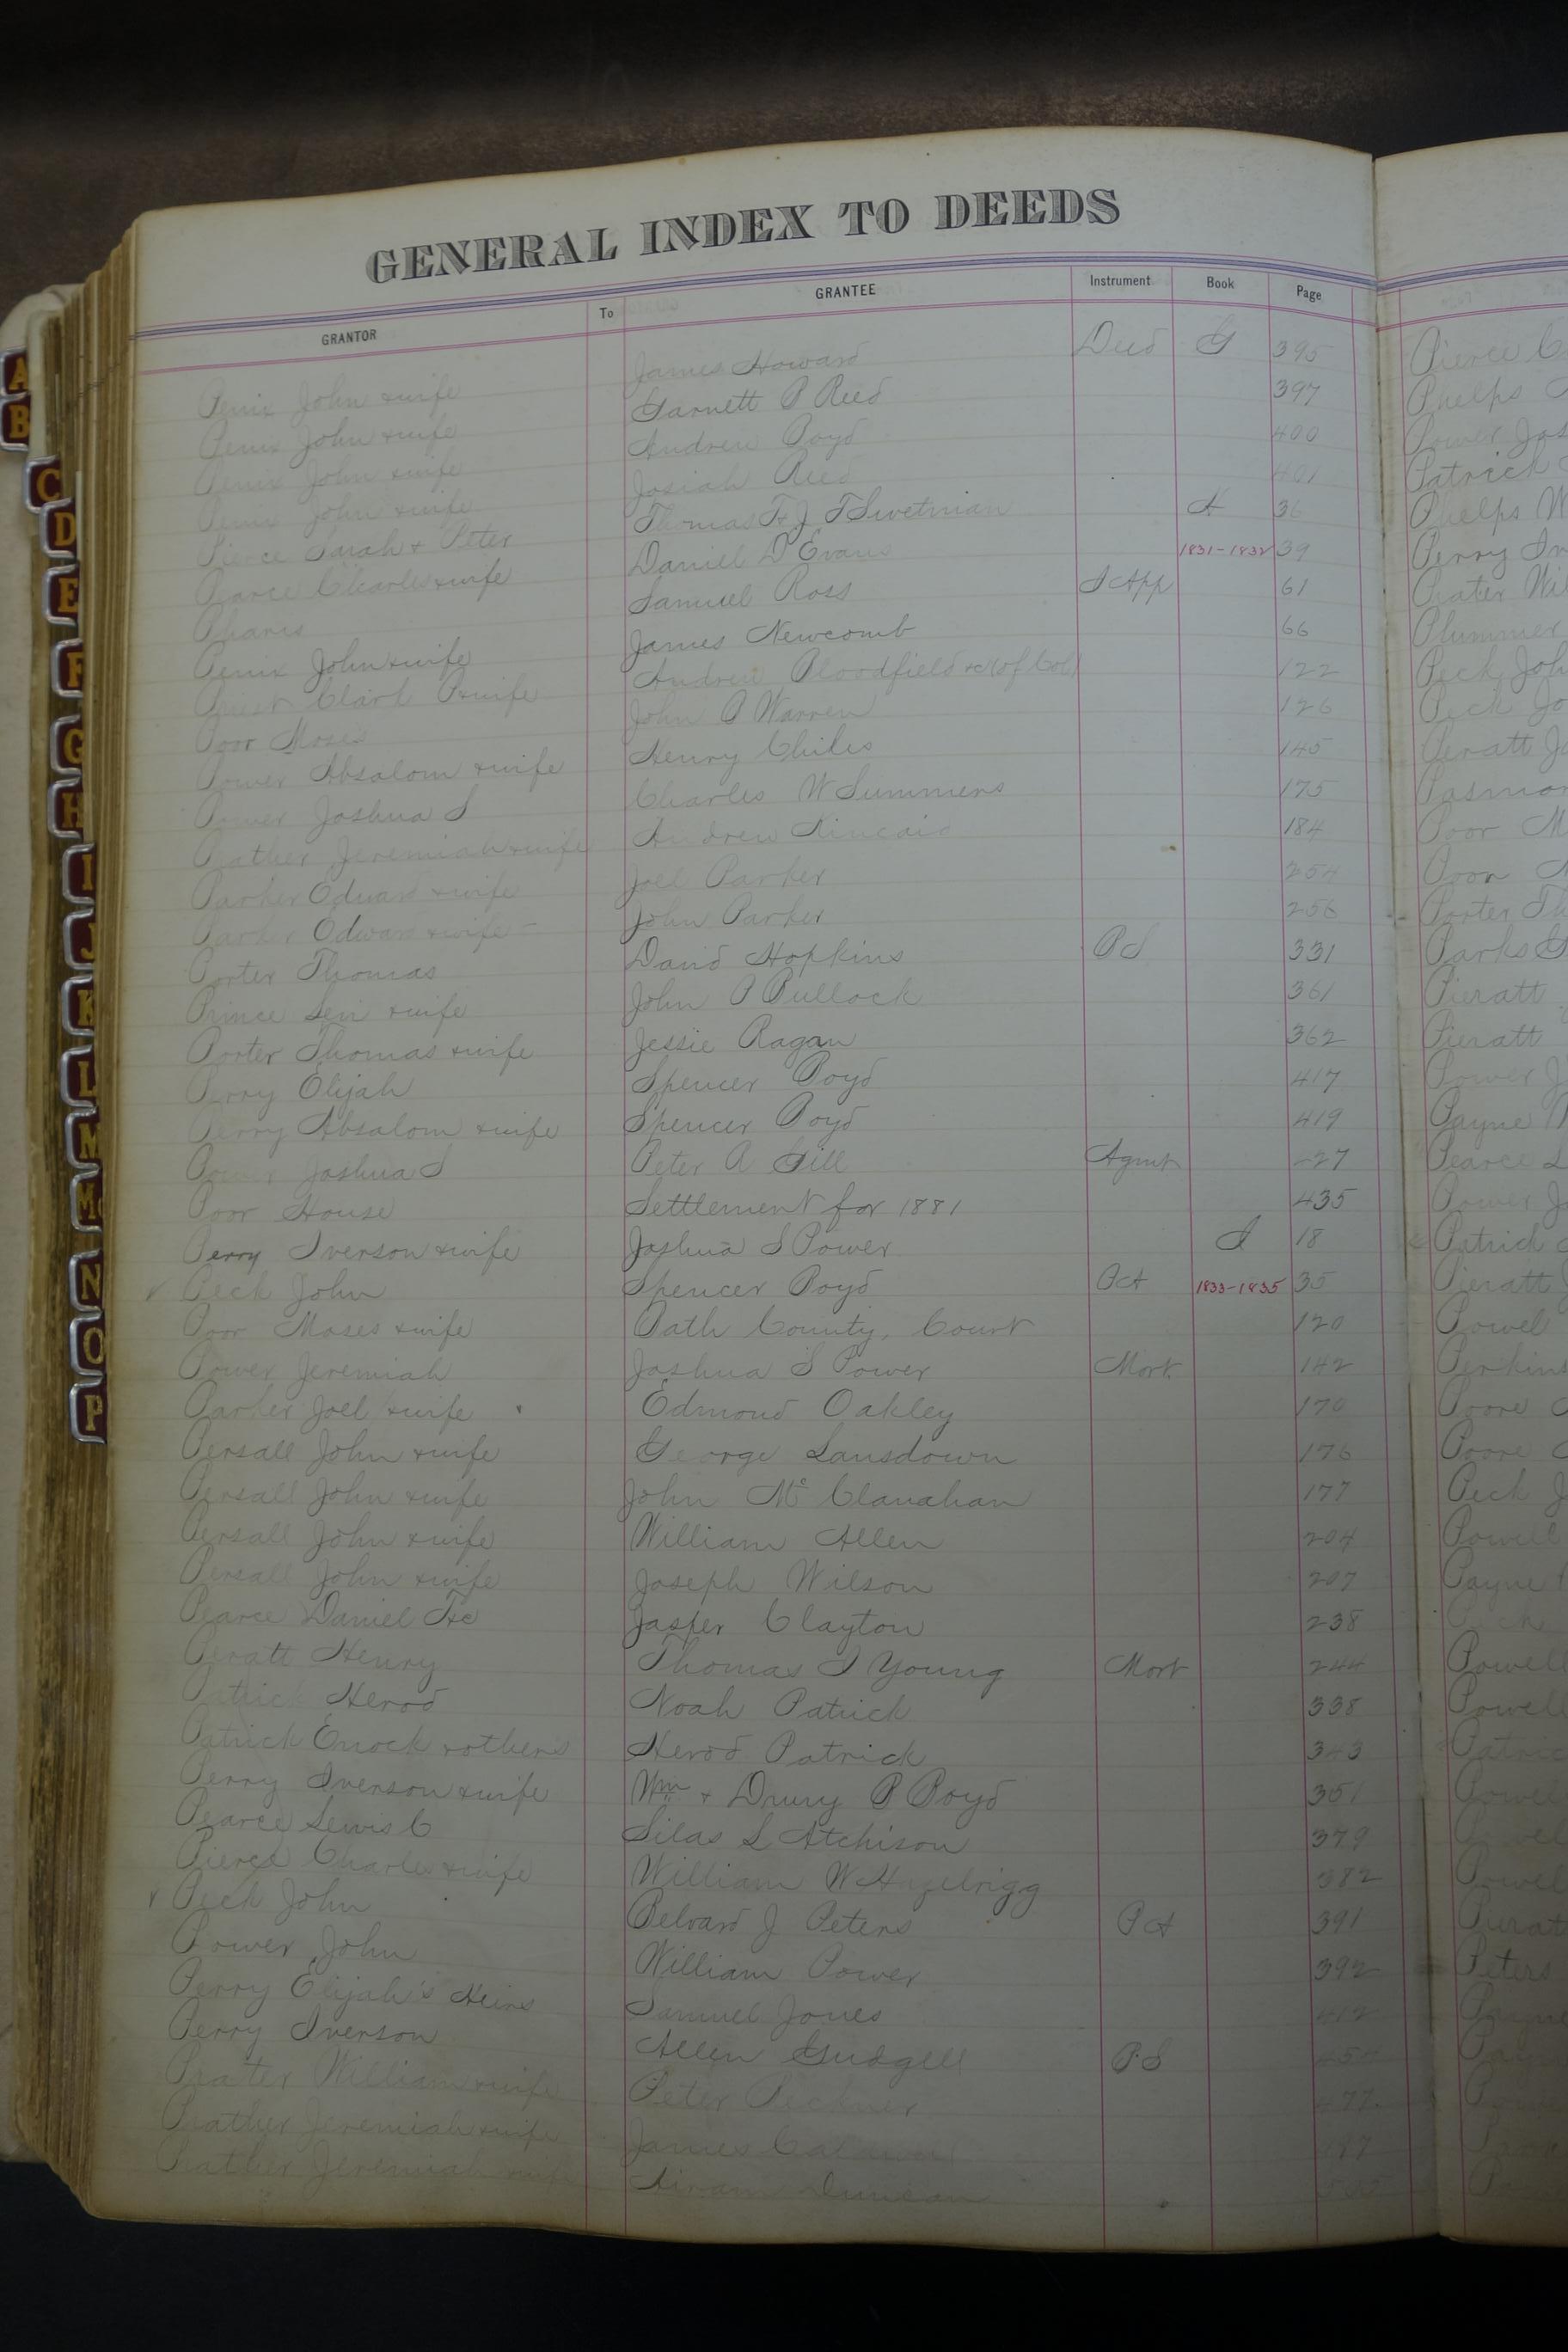 GENERAL INDEX TO DEEDS
GRANTOR To GRANTEE Instrument Book Page
Penix John & wife James Howard Deed G 395
Penix John & wife Garnett P Reed 397
Penix John & wife Andrew Boyd 400
Penix John & wife Josiah Reed 401
Pierce Sarah & Peter Thomas F & J F Swetman H 36
Pearce Charles & wife Daniel D Evans 1831-1832 39
Pharis Samuel Ross 61
Penix John & wife James Newcomb 66
Clark & wife Andrew Bloodfield 122
Poor Moses John P Warren 126
Power Absalom & wife Henry Chiles 145
Power Joshua S Charles W Summers 175
Prather Jeremiah & wife Andrew Kincaid 184
Parker Edward & wife Joel Parker 254
Parker Edward & wife John Parker 256
Porter Thomas David Hopkins PS 331
Prince Levi & wife John P Bullock 361
Porter Thomas & wife Jessie Ragan 362
Perry Elijah Spencer Boyd 417
Perry Absalom & wife Spencer Boyd 419
Power Joshua S Peter R Gill Agmt 427
Poor House Settlement for 1881 435
Perry Iverson & wife Joshua S Power I 18
Peck John Spencer Boyd PA 1833-1835 35
Poor Moses & wife Bath County Court 120
Power Jeremiah Joshua S Power Mort. 142
Parker Joel & wife Edmond Oakley 170
Persall John & wife George Lansdown 176
Persall John & wife John Mc Clanahan 177
Persall John & wife William Allen 204
Persall John & wife Joseph Wilson 207
Pearce Daniel Jasper Clayton 238
Peratt Henry Thomas I Young Mort 244
Patrick Herod Noah Patrick 338
Patrick Enock & others Herod Patrick 343
Perry Iverson & wife Wm & Drury B Boyd 351
Pearce Lewis C Silas L Atchison 379
Pierce Charles & wife William W Hazelrigg 382
Peck John Belvard J Peters PA 391
Power John William Power 392
Perry Elijah's Heirs Samuel Jones 412
Perry Iverson Allen Gudgell P.S
Prater William & wife Peter 477
Prather Jeremiah & wife James
Prather Jeremiah & wife Hiram Duncan
Pierce
Phelps
Power Jos
Patrick
Phelps W
Perry
Prater
Plummer
Peck John
Peck Jo
Peratt
Poor
Poor
Porter
Parks
Pieratt
Pieratt
Power
Payne
Pearce
Power
Patrick
Pieratt
Powel
Perkins
Poore
Poore
Peck
Powell
Payne
Peck
Powell
Powell
Peters
A
B
C
D
E
F
G
H
I
J
K
L
M
Mc
N
O
P